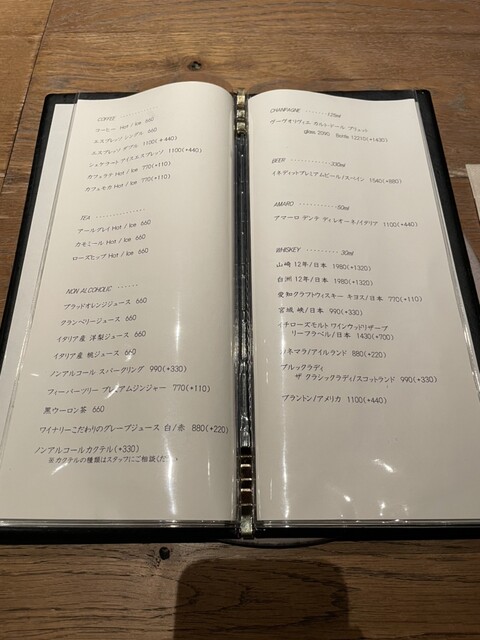 COFFEE ---------------
コーヒー Hot / Ice 660
エスプレッソ シングル 660
エスプレッソ ダブル 1100(+440)
シェケラート アイスエスプレッソ 1100(+440)
カフェラテ Hot / Ice 770(+110)
カフェモカ Hot / Ice 770(+110)
TEA ---------------
アールグレイ Hot / Ice 660
カモミール Hot / Ice 660
ローズヒップ Hot / Ice 660
NON ALCOHOLIC ------
ブラッドオレンジジュース 660
クランベリージュース 660
イタリア産 洋梨ジュース 660
イタリア産 桃ジュース 660
ノンアルコール スパークリング 990(+330)
フィーバーツリー プレミアムジンジャー 770(+110)
黒ウーロン茶 660
ワイナリーこだわりのグレープジュース 白/赤 880(+220)
ノンアルコールカクテル(+330)
※カクテルの種類はスタッフにご相談ください
CHANPAGNE --------125ml
ヴーヴオリヴィエ カルト・ドール ブリュット
glass 2090 Bottle 13210(+1430)
BEER ------------330ml
イネディットプレミアムビール/スペイン 1540(+880)
AMARO ------------60ml
アマーロ デンテ ディ レオーネ/イタリア 1100(+440)
WHISKEY ---------- 30ml
山崎 12年/日本 1980(+1320)
白洲 12年/日本 1980(+1320)
愛知クラフトウィスキー キヨス/日本 770(+110)
宮城 峡/日本 990(+330)
イチローズモルト ワインウッドリザーブ
リーフラベル/日本 1430(+700)
コネマラ/アイルランド 880(+220)
ブルックラディ
ザ クラシックラディ/スコットランド 990(+330)
ブラントン/アメリカ 1100(+440)